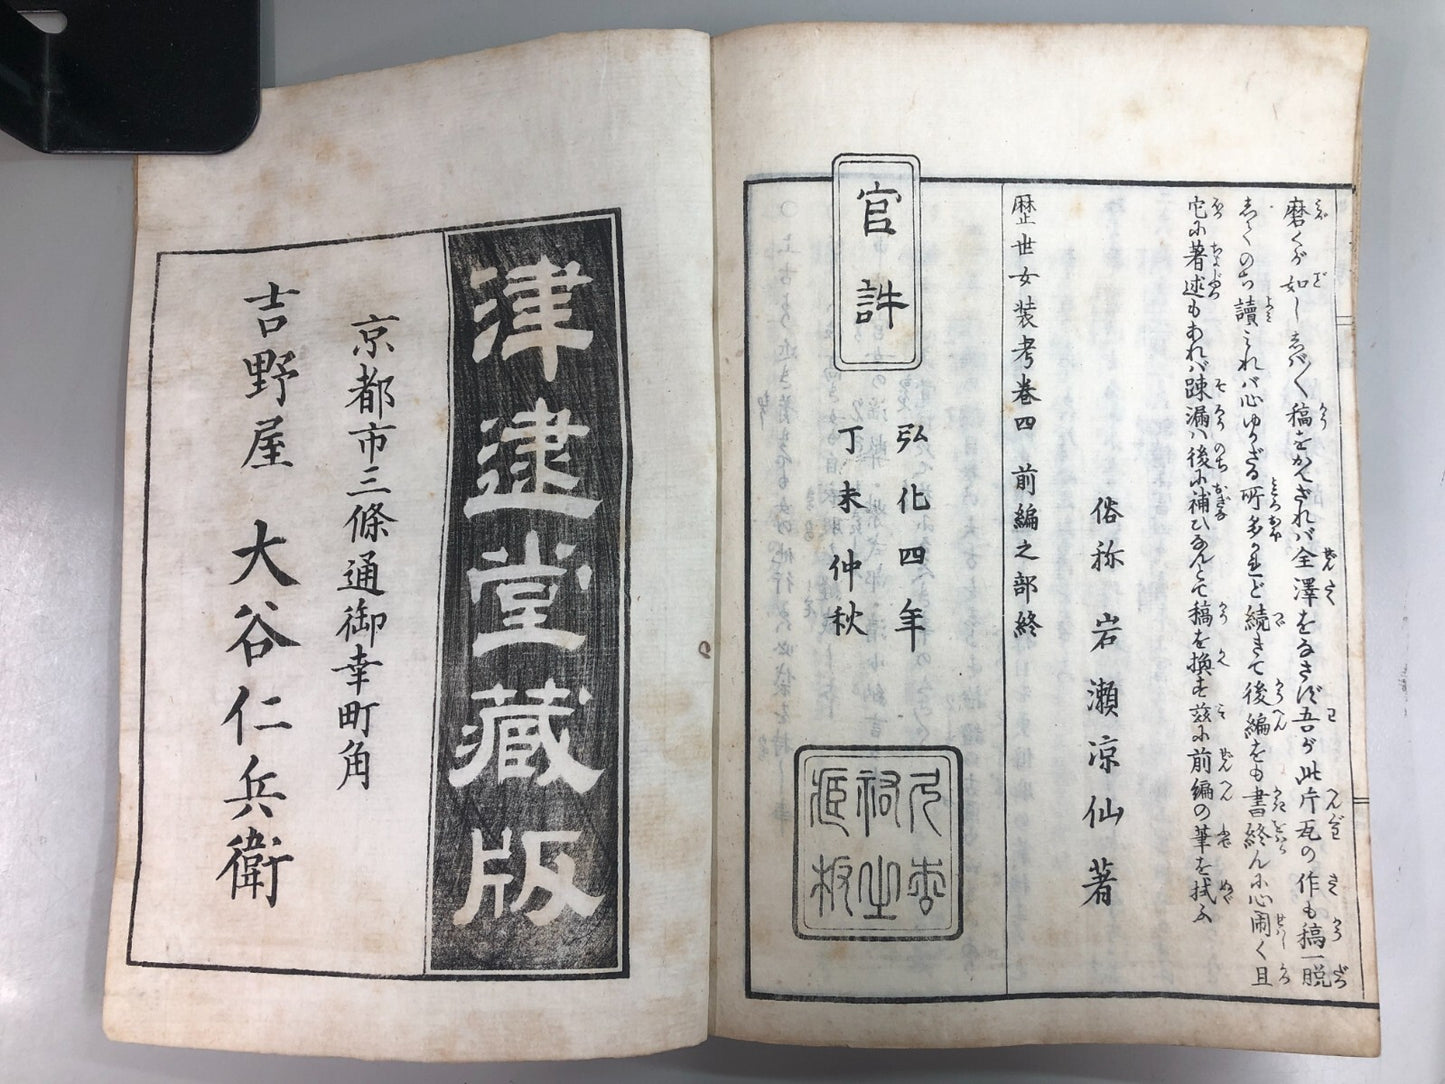 磨くが如ししバ〱稿をかへざれバ全澤をなさず吾が此片瓦の作も稿一脱
しての
ち讀これバ心ゆかざる所多かれど続きて後編をも書終んに心閙く且
它に著述もあれバ踈漏ハ後に補ひなんとて稿を換ず茲に前編の筆を拭ふ
俗称 岩瀬凉仙著
歴世女装考巻四 前編之部終
官許
弘化四年
丁未仲秋
津逮堂藏版
京都市三條通御幸町角
吉野屋 大谷仁兵衛